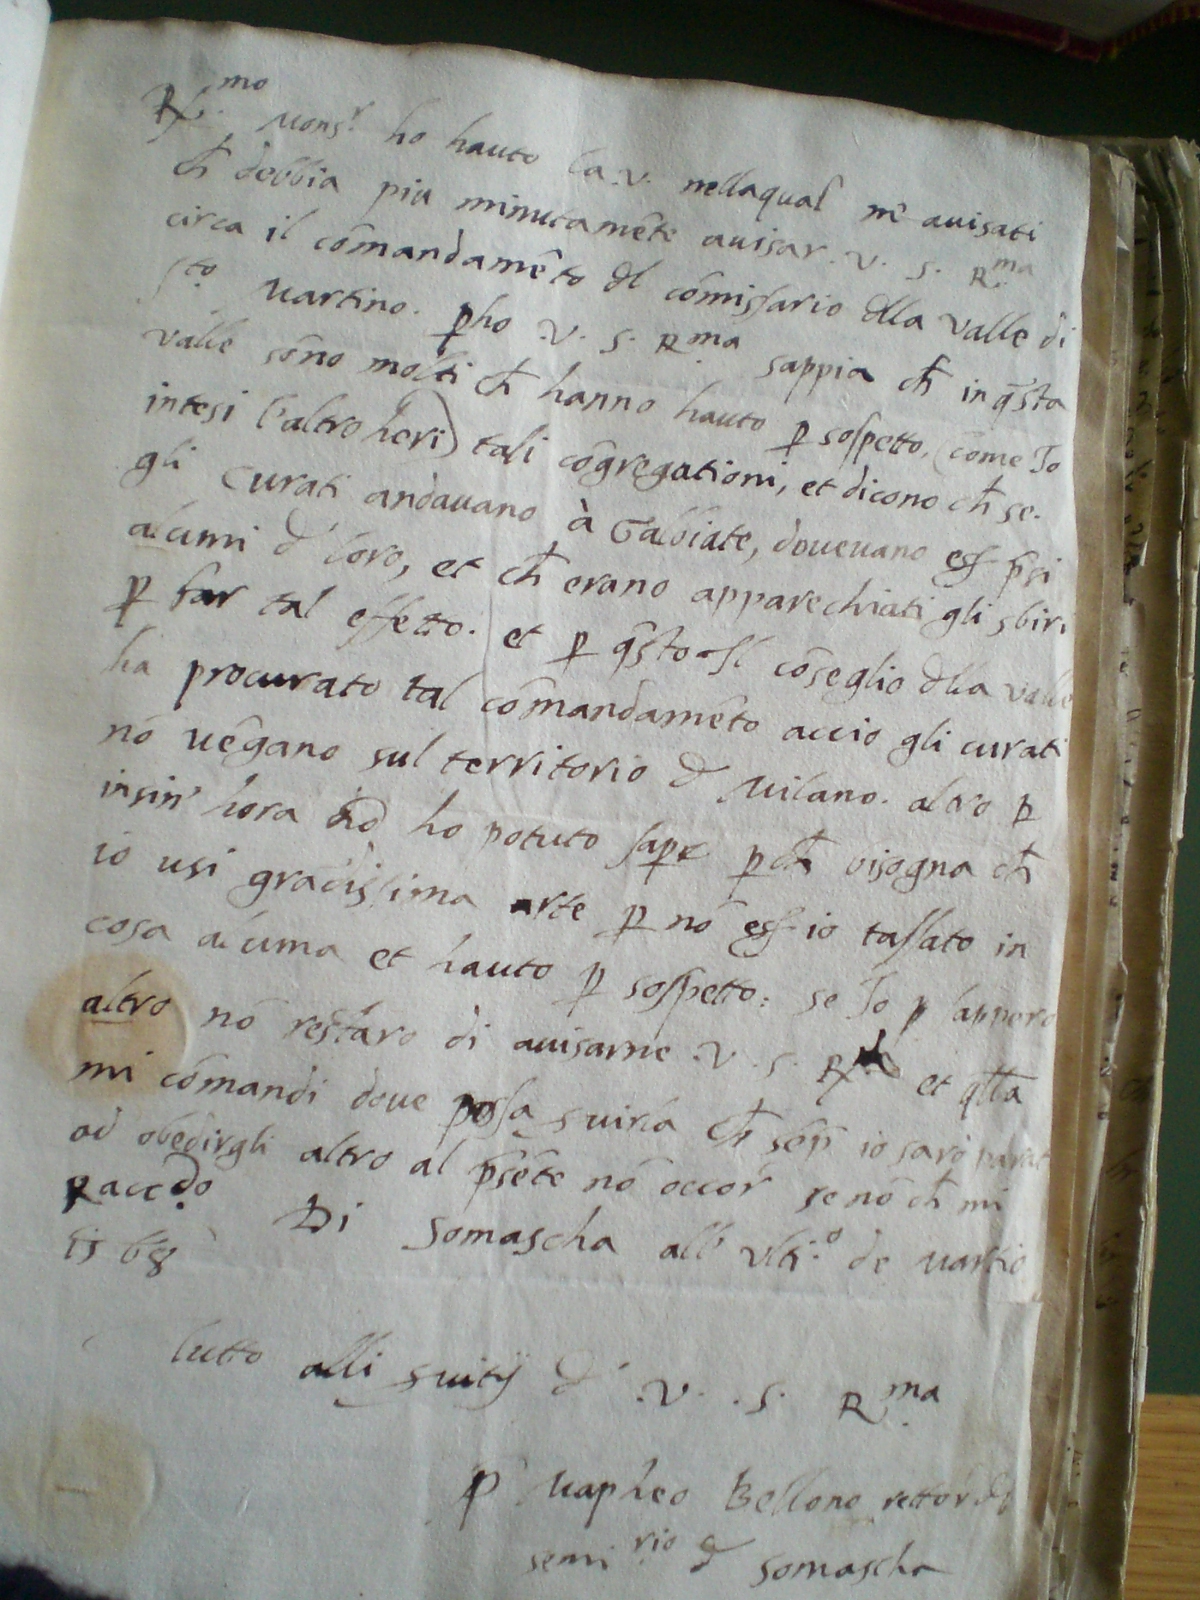 R.mo Mons.r ho hauto la .v. nella qual m̄ avisati
ch̄ debbia piu minutamēte avisar .v. s. R.ma
circa il cōmandamēto dl cōmissario dlla valle di
s.to Martino. ꝑho .v. s. R.ma sappia ch̄ in q̄sta
valle sōno molti ch̄ hanno hauto ꝑ sospetto, (come Io
intesi l'altro heri) tali cōgregationi, et dicono ch̄ se.
gli Curati andavano à Galbiate, dovevano ess̄ p̄si
alcuni d loro, et ch̄ erano apparechiati gli sbiri
ꝑ far tal effetto. et ꝑ q̄sto il cōseglio dlla valle
ha procurato tal cōmandamēto accio gli curati
nō vēgano sul territorio d Milano. altro ꝑ
insin' hora nō ho potuto sapꝑe ꝑch̄ bisogna ch̄
io usi grādissima arte ꝑ nō ess̄ io tassato in
cosa alcuna et hauto ꝑ sospetto: se Io ꝑ sappero
altro nō restaro di avisarne .v. s. R. et q̄lla
mi cōmandi dove possa s̄virla ch̄ sēp̄ io saro parat
ad obedirgli altro al p̄sēte nō occor̄ se nō ch̄ mi
Raccdo Di Somascha all' ulti.o de Martio
1568
tutto alli s̄vitij d .v. .s. R.ma
P Mapheo Bellono rettor dl
semi.rio d Somascha